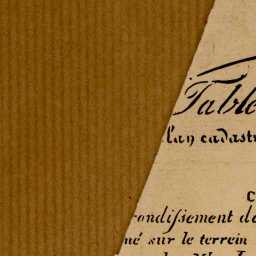 Table
l'an cadast
C
rondissement d
né sur le terrein